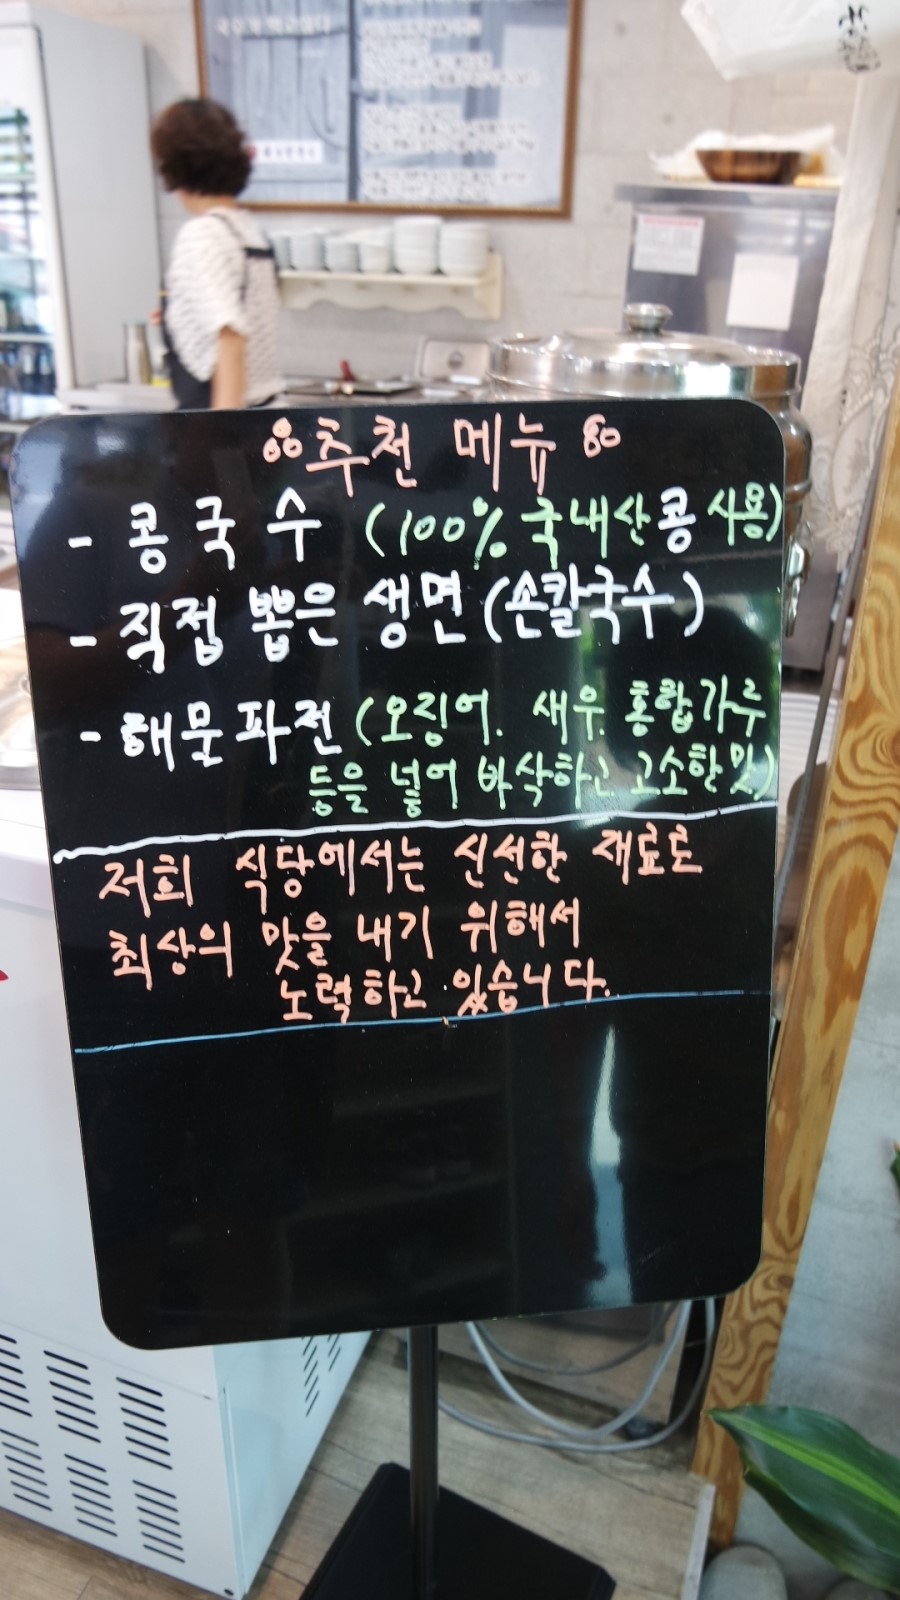 추천 메뉴
- 콩국수 (100% 국내산콩 사용)
- 직접 뽑은 생면 (손칼국수)
- 해물파전 (오징어. 새우. 홍합가루
등을 넣어 바삭하고 고소한맛)
저희 식당에서는 신선한 재료로
최상의 맛을 내기 위해서
노력하고 있습니다.